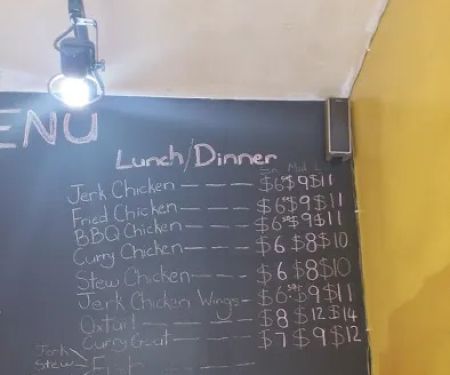 ENU
Lunch/Dinner
Sm Md L
Jerk Chicken ---- $6.50 $9 $11
Fried Chicken ---- $6.50 $9 $11
BBQ Chicken ---- $6.50 $9 $11
Curry Chicken ---- $6 $8 $10
Stew Chicken --- $6 $8 $10
Jerk Chicken Wings - $6.50 $9 $11
Oxtail ---- $8 $12 $14
Curry Goat --- $7 $9 $12
Jerk
Stew
Fish